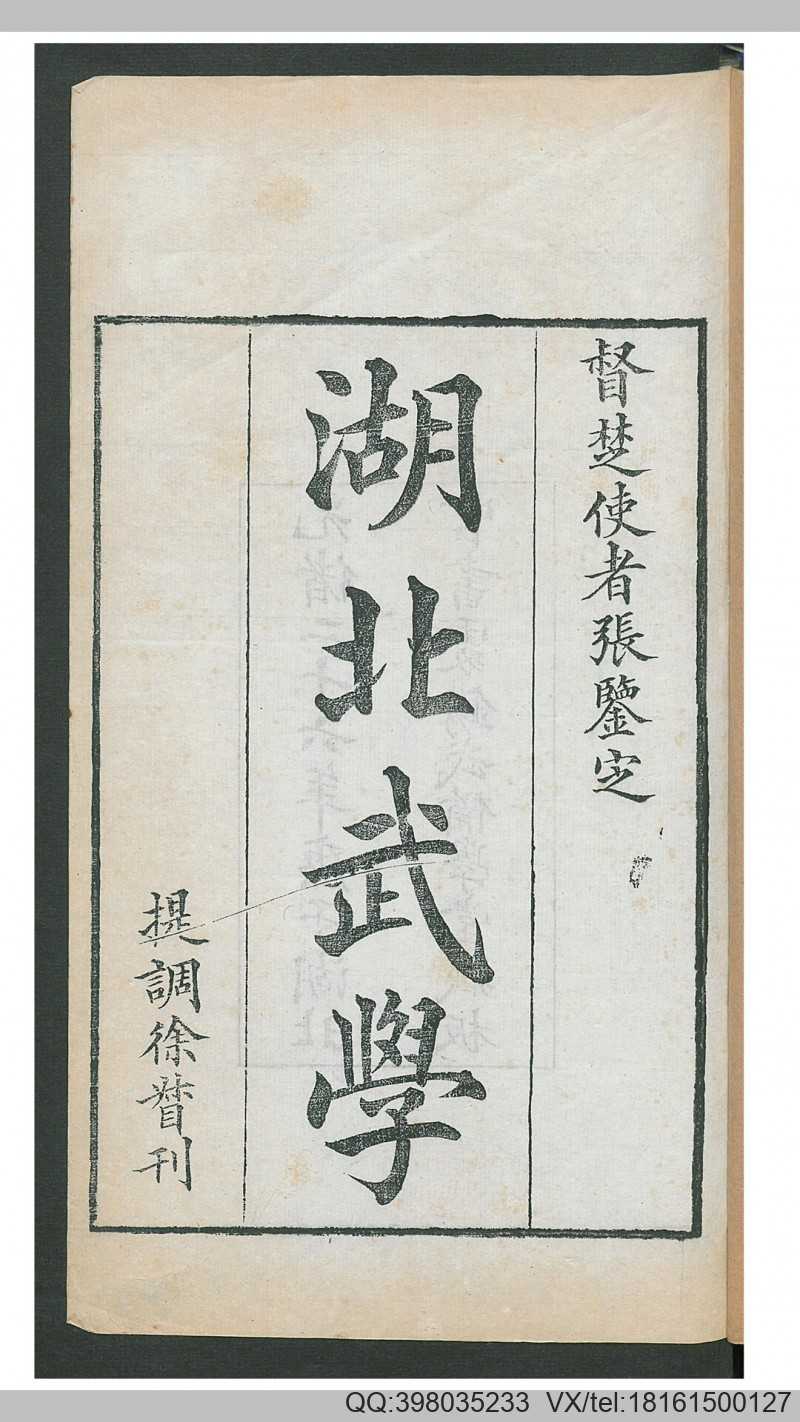 督楚使者張鑒定
湖北武學
提調徐督刊
QQ:398035233 VX/tel:18161500127